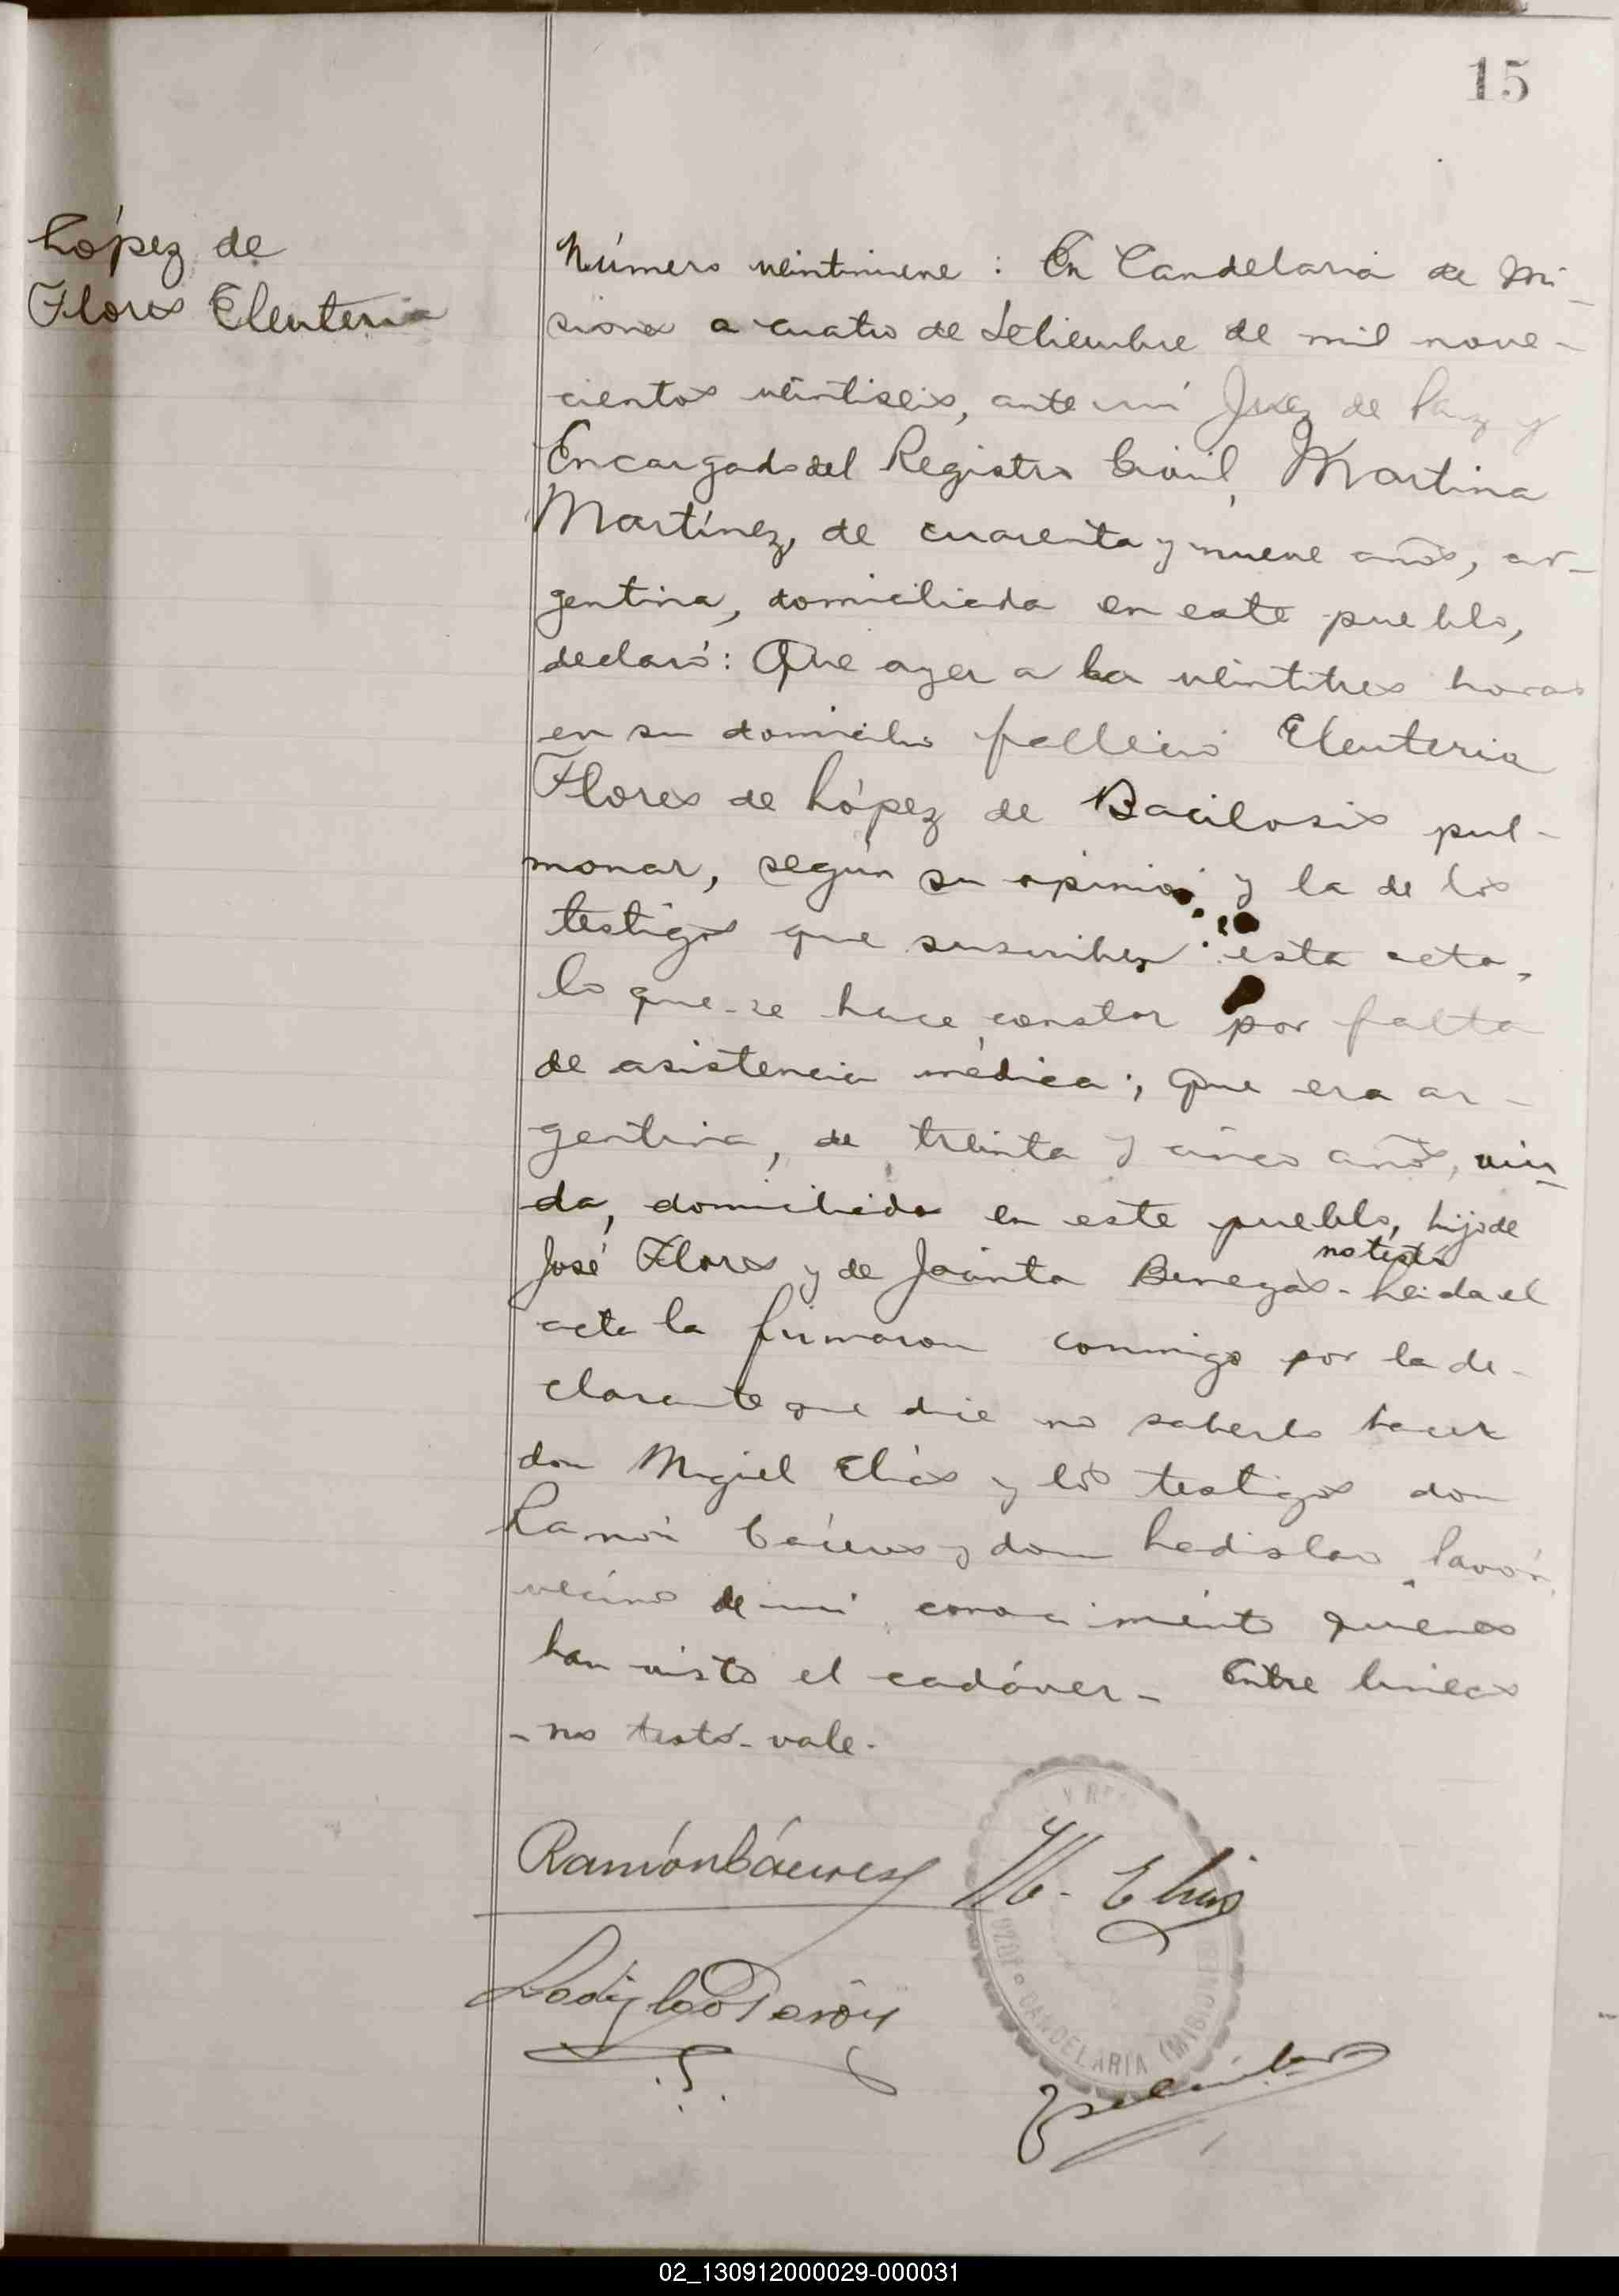 15
López de
Flores Eleuteria
Número veintinueve : En Candelaria de Mi-
siones a cuatro de Setiembre de mil nove-
cientos veintiseis, ante mí Juez de Paz y
Encargado del Registro Civil, Martina
Martínez, de cuarenta y nueve años, ar-
gentina, domiciliada en este pueblo,
declaró: Que ayer a las veintitres horas
en su domicilio falleció Eleuteria
Flores de López de Bacilosis pul-
monar, según su opinión y la de los
testigos que suscriben esta acta,
lo que se hace constar por falta
de asistencia médica; que era ar-
gentina, de treinta y cinco años, viu-
da, domiciliada en este pueblo, hija de
no testó
José Flores y de Jacinta Benegas - Leida el
acta la firmaron conmigo por la de-
clarante que dice no saberlo hacer
don Miguel Elías y los testigos don
Ramón Cáceres y don Ladislao Pavón,
vecinos de mi conocimiento quienes
han visto el cadáver - Entre lineas
- no testó - vale -
Ramón Cáceres M. Elias
Ladislao Pavón
CANDELARIA (MISIONES)
02_130912000029-000031